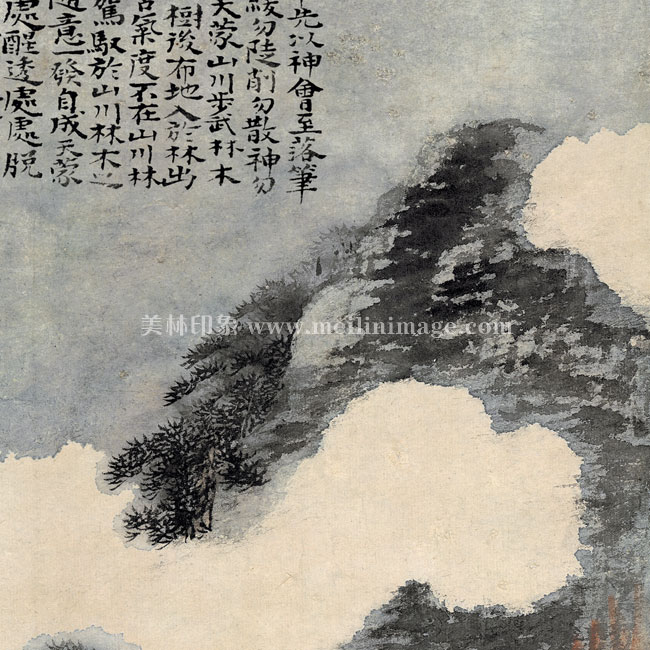 先以神會至落筆
勿陡削勿散神勿
天蒙山川步武林木
樹後布地入於林出
氣度不在山川林
駕馭於山川林木之
隨意一發自成天蒙
處醒透處處脫
美林印象 www.meilinimage.com